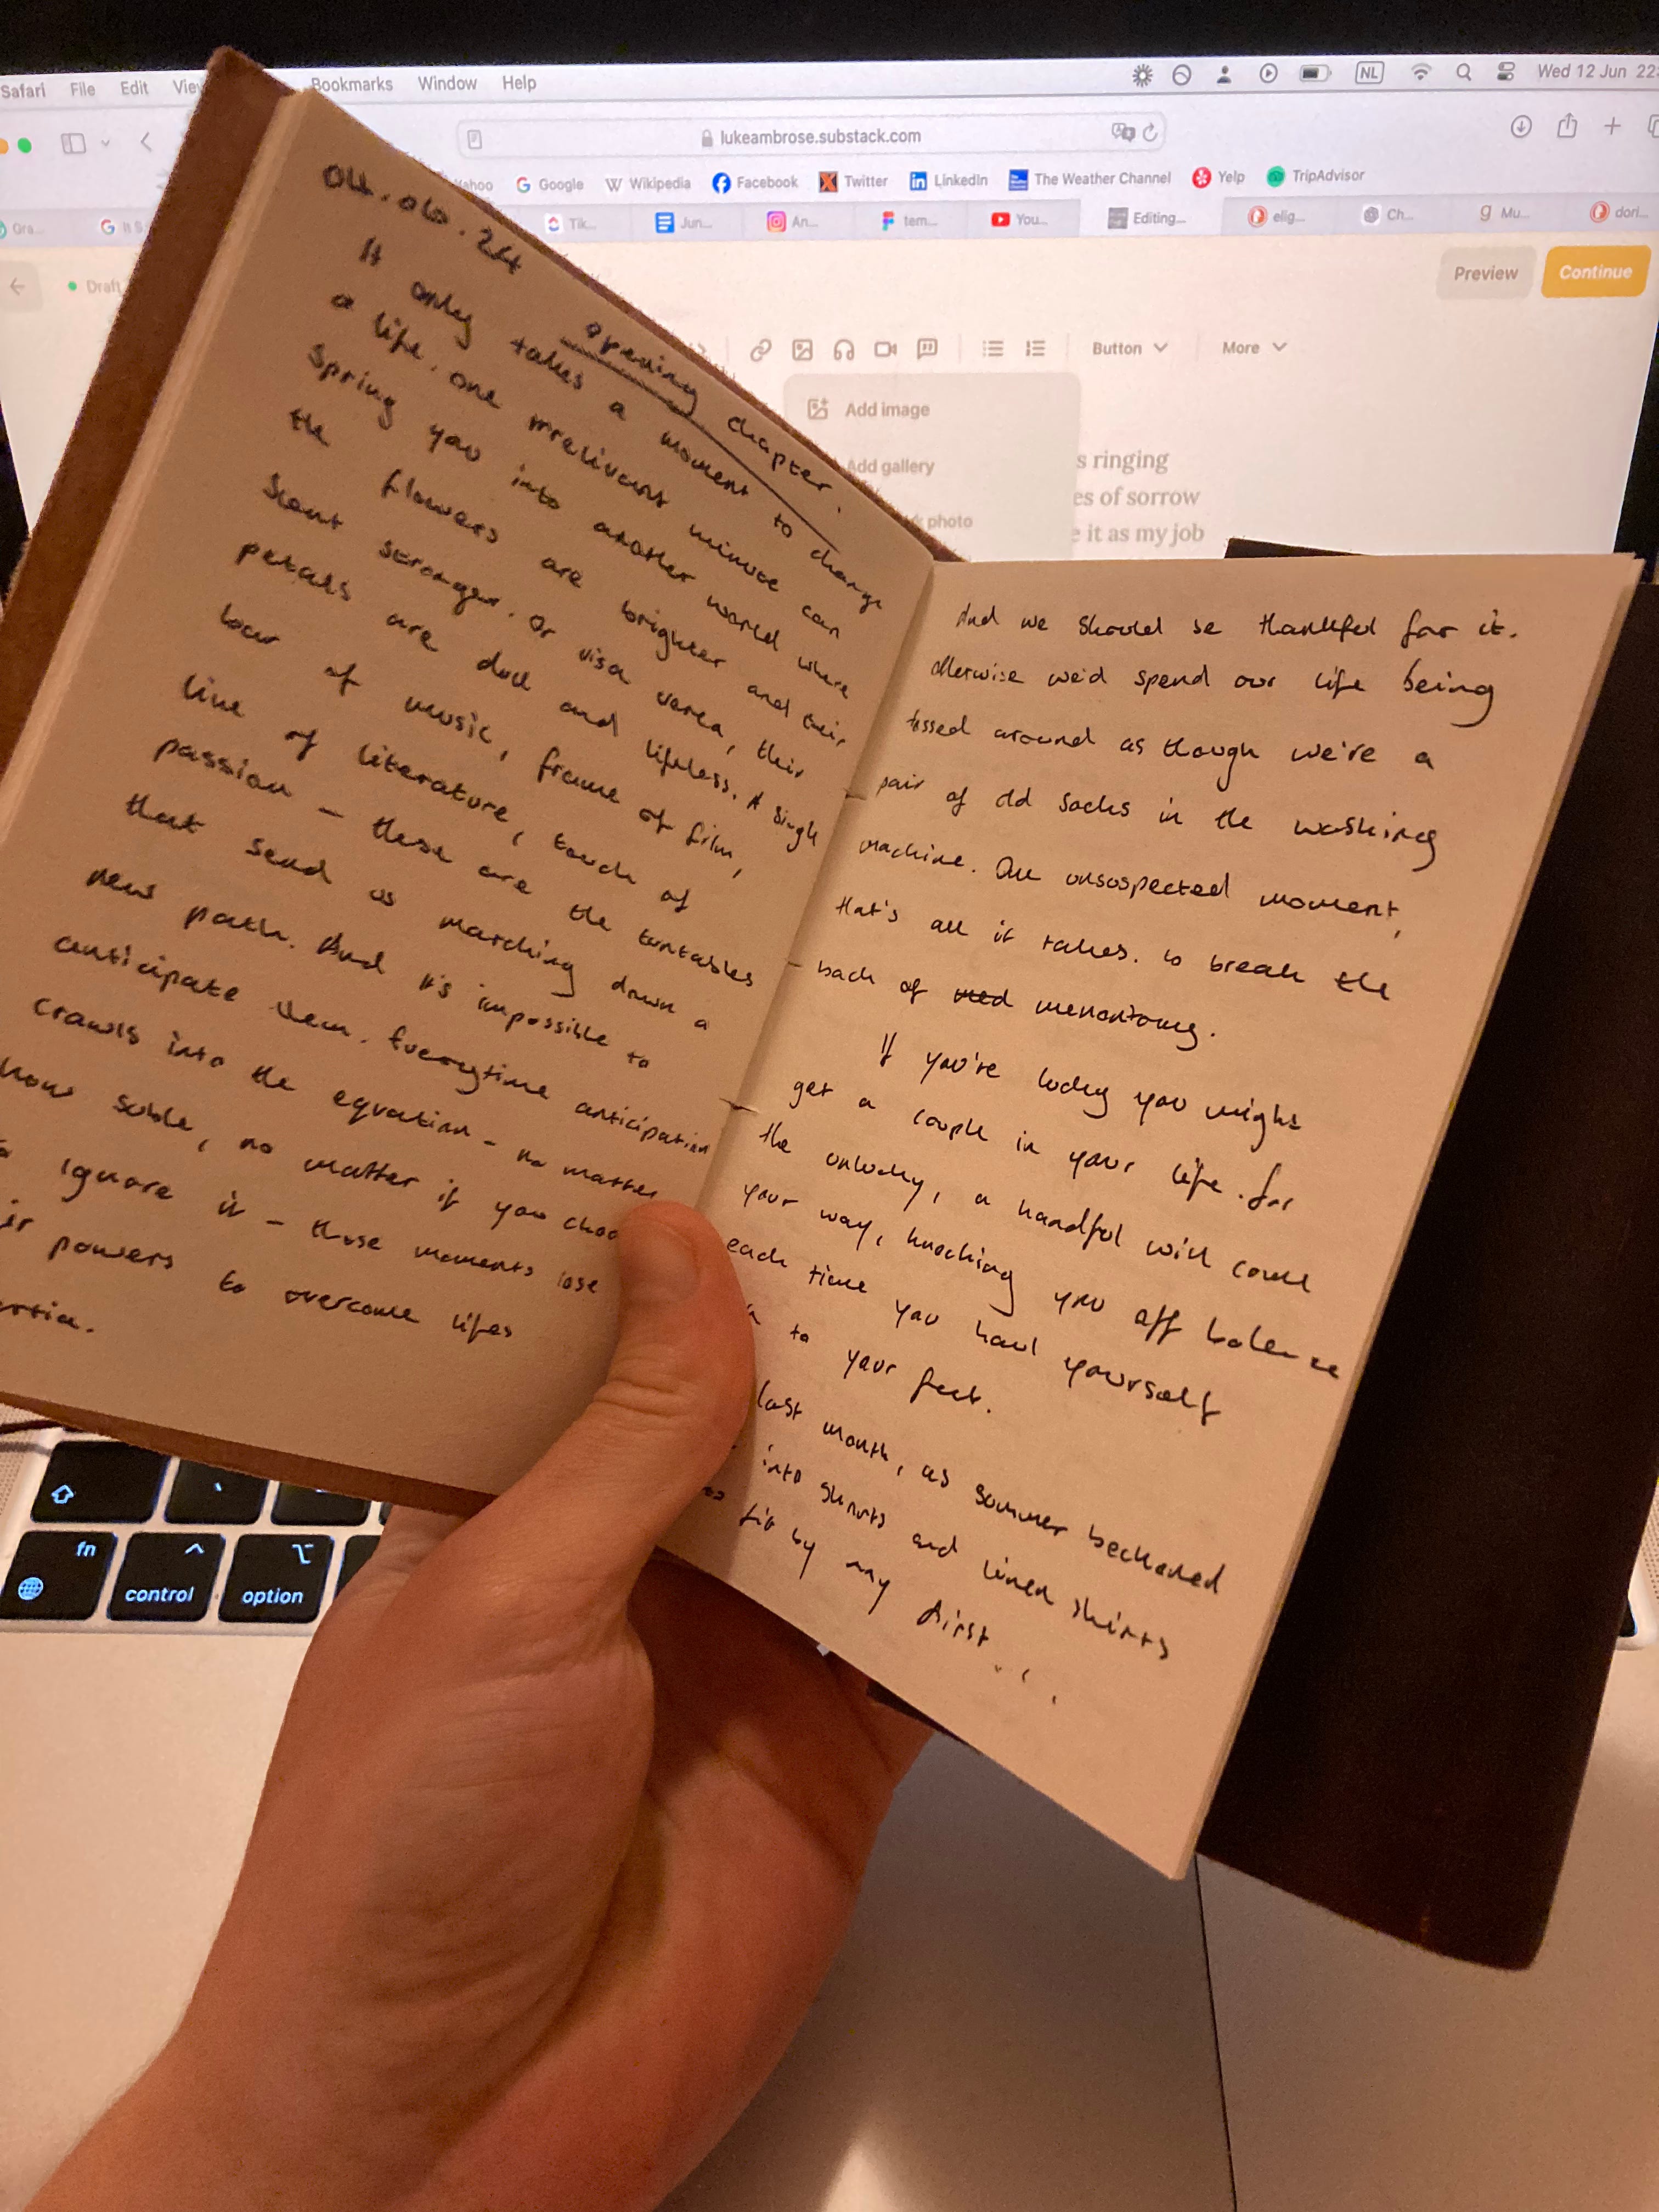 Safari File Edit View Bookmarks Window Help NL Wed 12 Jun 22:
lukeambrose.substack.com
Yahoo Google Wikipedia Facebook Twitter LinkedIn The Weather Channel Yelp TripAdvisor
Gra... It S... Tik... Jun... An... tem... You... Editing... elig... Ch... Mu... dori...
Draft Preview Continue
Button More
Add image
Add gallery
photo
s ringing
es of sorrow
it as my job
04.06.24
opening chapter.
It only takes a moment to change
a life. one irrelivant minute can
spring you into another world where
the flowers are brighter and their
scent stronger. Or visa verca, their
petals are dull and lifeless. A single
of music, frame of film,
line of literature, touch of
passion – these are the
that send us marching down a
new path. And it's impossible to
anticipate them. Everytime anticipation
crawls into the equation – no matter
how suble, no matter if you
ignore it – those moments lose
powers to overcome lifes
And we should be thankful for it.
otherwise we'd spend our life being
tossed around as though we're a
pair of old socks in the washing
machine. One unsuspected moment,
that's all it takes. to break the
back of menontony.
If you're lucky you might
get a couple in your life. for
the unlucky, a handful will come
your way, knocking you off balance
each time you haul yourself
to your feet.
last month, as summer beckoned
into shorts and linen shirts
by my first...
fn
control
option